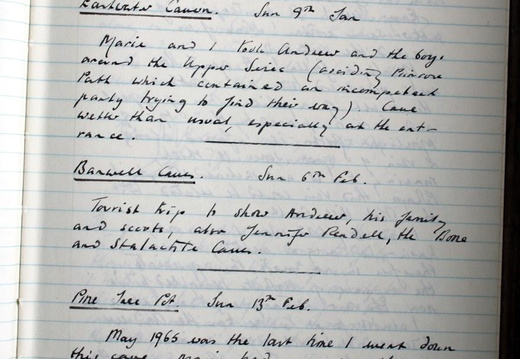 Eastwater Cavern. Sun 9th Jan
Marie and I took Andrew and the boys
around the Upper Series (avoiding Primrose
Path which contained an incompetent
party trying to find their way). Cave
wetter than usual, especially at the ent-
rance.
Banwell Caves. Sun 6th Feb.
Tourist trip to show Andrew, his family
and scouts, also Jennifer Rendell, the Bone
and Stalactite Caves.
Pine Tree Pot Sun 13th Feb.
May 1965 was the last time I went down
this cave